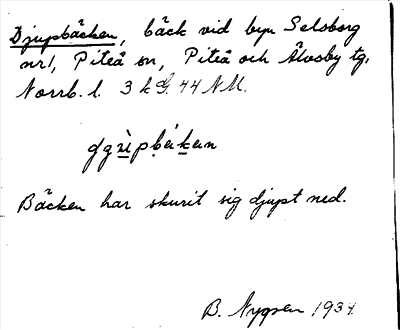 Djupbäcken, bäck vid byn Selsborg
nr1, Piteå sn, Piteå och Älvsby tg.
Norrb. l. 3 k G. 44 NM.
Bäcken har skurit sig djupt ned.
B. Nygren 1934.